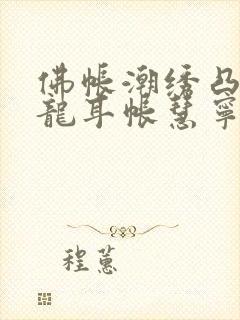 佛帳潮绣凸
龍耳帐慧寧
程蕙